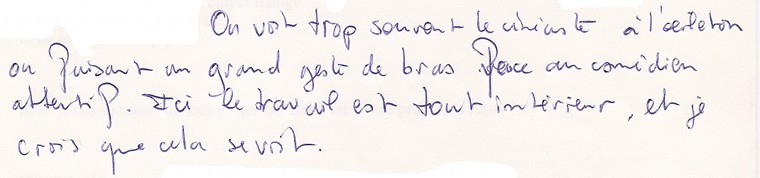 On voit trop souvent le cinéaste à l'œilleton
ou faisant un grand geste de bras face au comédien
attentif. Ici le travail est tout intérieur, et je
crois que cela se voit.